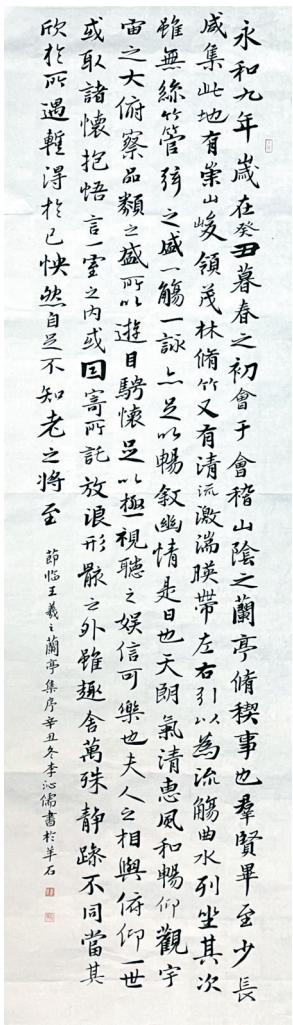 永和九年歲在癸丑暮春之初會于會稽山陰之蘭亭脩稧事也羣賢畢至少長
咸集此地有崇山峻領茂林脩竹又有清流激湍暎帶左右引以為流觴曲水列坐其次
雖無絲竹管弦之盛一觴一詠亦足以暢叙幽情是日也天朗氣清惠風和暢仰觀宇
宙之大俯察品類之盛所以遊目騁懷足以極視聽之娛信可樂也夫人之相與俯仰一世
或取諸懷抱悟言一室之內或因寄所託放浪形骸之外雖趣舍萬殊静躁不同當其
欣於所遇蹔得於己怏然自足不知老之將至
節臨王羲之蘭亭集序辛丑冬李沁儒書於羊石